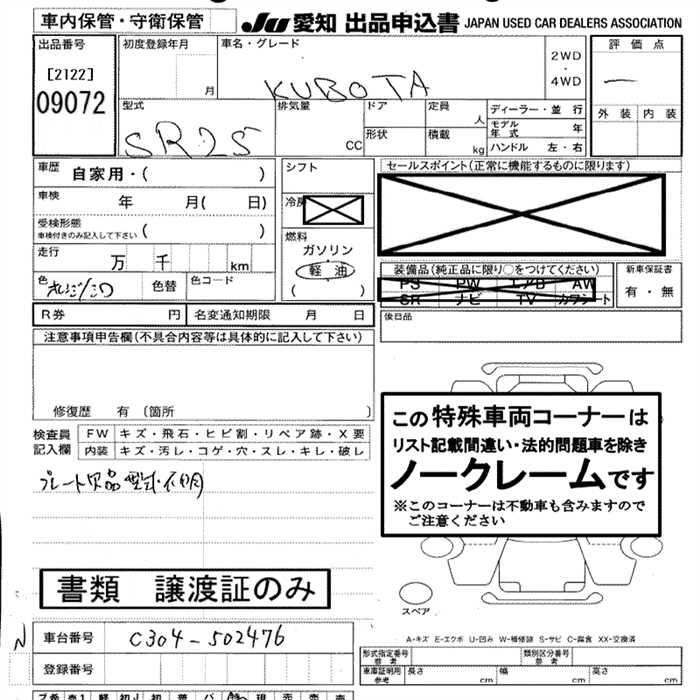 車内保管・守衛保管
JU 愛知 出品申込書 JAPAN USED CAR DEALERS ASSOCIATION
出品番号
[2122]
09072
初度登録年月
月
車名・グレード
KUBOTA
2WD
・
4WD
評価点
—
外装 内装
型式
SR25
排気量
CC
ドア
形状
定員
人
積載
kg
ディーラー・並 行
モデル年式 年
ハンドル 左・右
車歴 自家用・( )
車検 年 月( 日)
受検形態
車検付きのみ記入して下さい ( )
走行 万 千 km
色 色替 色コード
シフト
冷房
燃料
ガソリン
軽油
( )
セールスポイント(正常に機能するものに限ります)
装備品(純正品に限り○をつけてください)
PS PW エアB AW
SR ナビ TV カワシート
新車保証書
有・無
R券 円 名変通知期限 月 日
後日品
注意事項申告欄(不具合内容等は具体的に記入して下さい)
修復歴 有 〔箇所 〕
検査員記入欄
FW キズ・飛石・ヒビ割・リペア跡・X要
内装 キズ・汚レ・コゲ・穴・スレ・キレ・破レ
プレート欠品 型式不明
この特殊車両コーナーは
リスト記載間違い・法的問題車を除き
ノークレームです
※このコーナーは不動車も含みますので
ご注意ください
書類 譲渡証のみ
スペア
N
車台番号 C304-502476
登録番号
A-キズ E-エクボ U-凹み W-補修跡 S-サビ C-腐食 XX-交換済
形式指定番号 参考
類別区分番号 参考
車庫証明用 参考 長さ cm 幅 cm 高さ cm